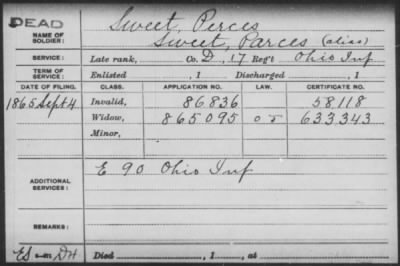 DEAD
NAME OF SOLDIER: Sweet, Perces
Sweet, Parces (alias)
SERVICE: Late rank, Co. D, 17 Reg't Ohio Inf
TERM OF SERVICE: Enlisted , 1 Discharged , 1
DATE OF FILING. CLASS. APPLICATION NO. LAW. CERTIFICATE NO.
1865 Sept 4 Invalid, 86836 58118
Widow, 865095 633343
Minor,
ADDITIONAL SERVICES: E 90 Ohio Inf
REMARKS:
Died , 1 , at